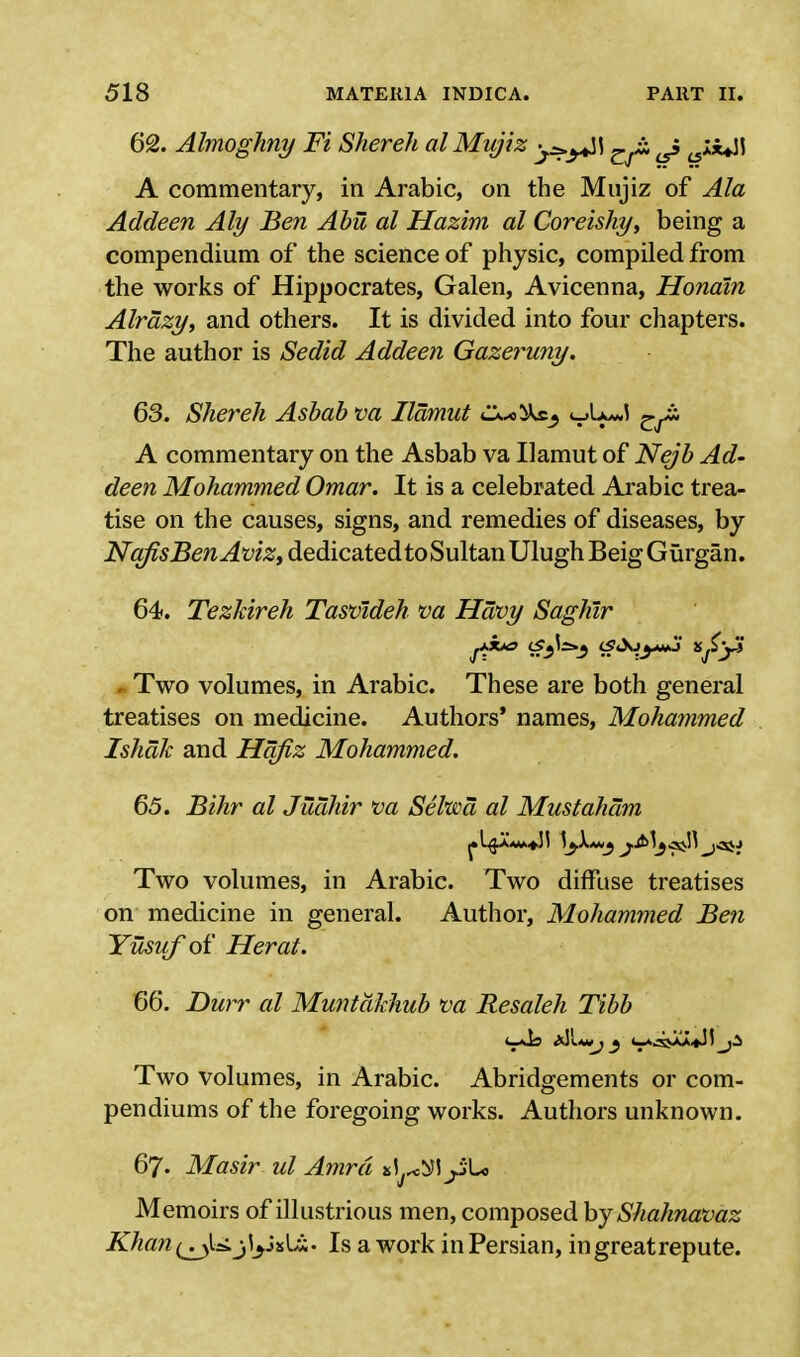 518 MATERIA INDICA. PART II.
62. Almoghny Fi Shereh al Mujiz المغني في شرح الموجز
A commentary, in Arabic, on the Mujiz of Ala
Addeen Aly Ben Abū al Hazim al Coreishy, being a
compendium of the science of physic, compiled from
the works of Hippocrates, Galen, Avicenna, Honaīn
Alrāzy, and others. It is divided into four chapters.
The author is Sedid Addeen Gazeruny.
63. Shereh Asbab va Ilāmut شرح اسباب وعلامت
A commentary on the Asbab va Ilamut of Nejb Ad-
deen Mohammed Omar. It is a celebrated Arabic trea-
tise on the causes, signs, and remedies of diseases, by
Nafis Ben Aviz, dedicated to Sultan Ulugh Beig Gūrgān.
64. Tezkireh Tasvīdeh va Hāvy Saghīr
تزكره تسويدي وحاوي صغير
Two volumes, in Arabic. These are both general
treatises on medicine. Authors' names, Mohammed
Ishāk and Hāfiz Mohammed.
65. Bihr al Jūāhir va Selwā al Mustahām
بحر الجواهر وسلوا المستهام
Two volumes, in Arabic. Two diffuse treatises
on medicine in general. Author, Mohammed Ben
Yūsuf of Herat.
66. Durr al Muntākhub va Resaleh Tibb
در المنتخب و رساله طب
Two volumes, in Arabic. Abridgements or com-
pendiums of the foregoing works. Authors unknown.
67. Masir ul Amrā ماثر الامراء
Memoirs of illustrious men, composed by Shahnavaz
Khan شاهنوازخان. Is a work in Persian, in great repute.